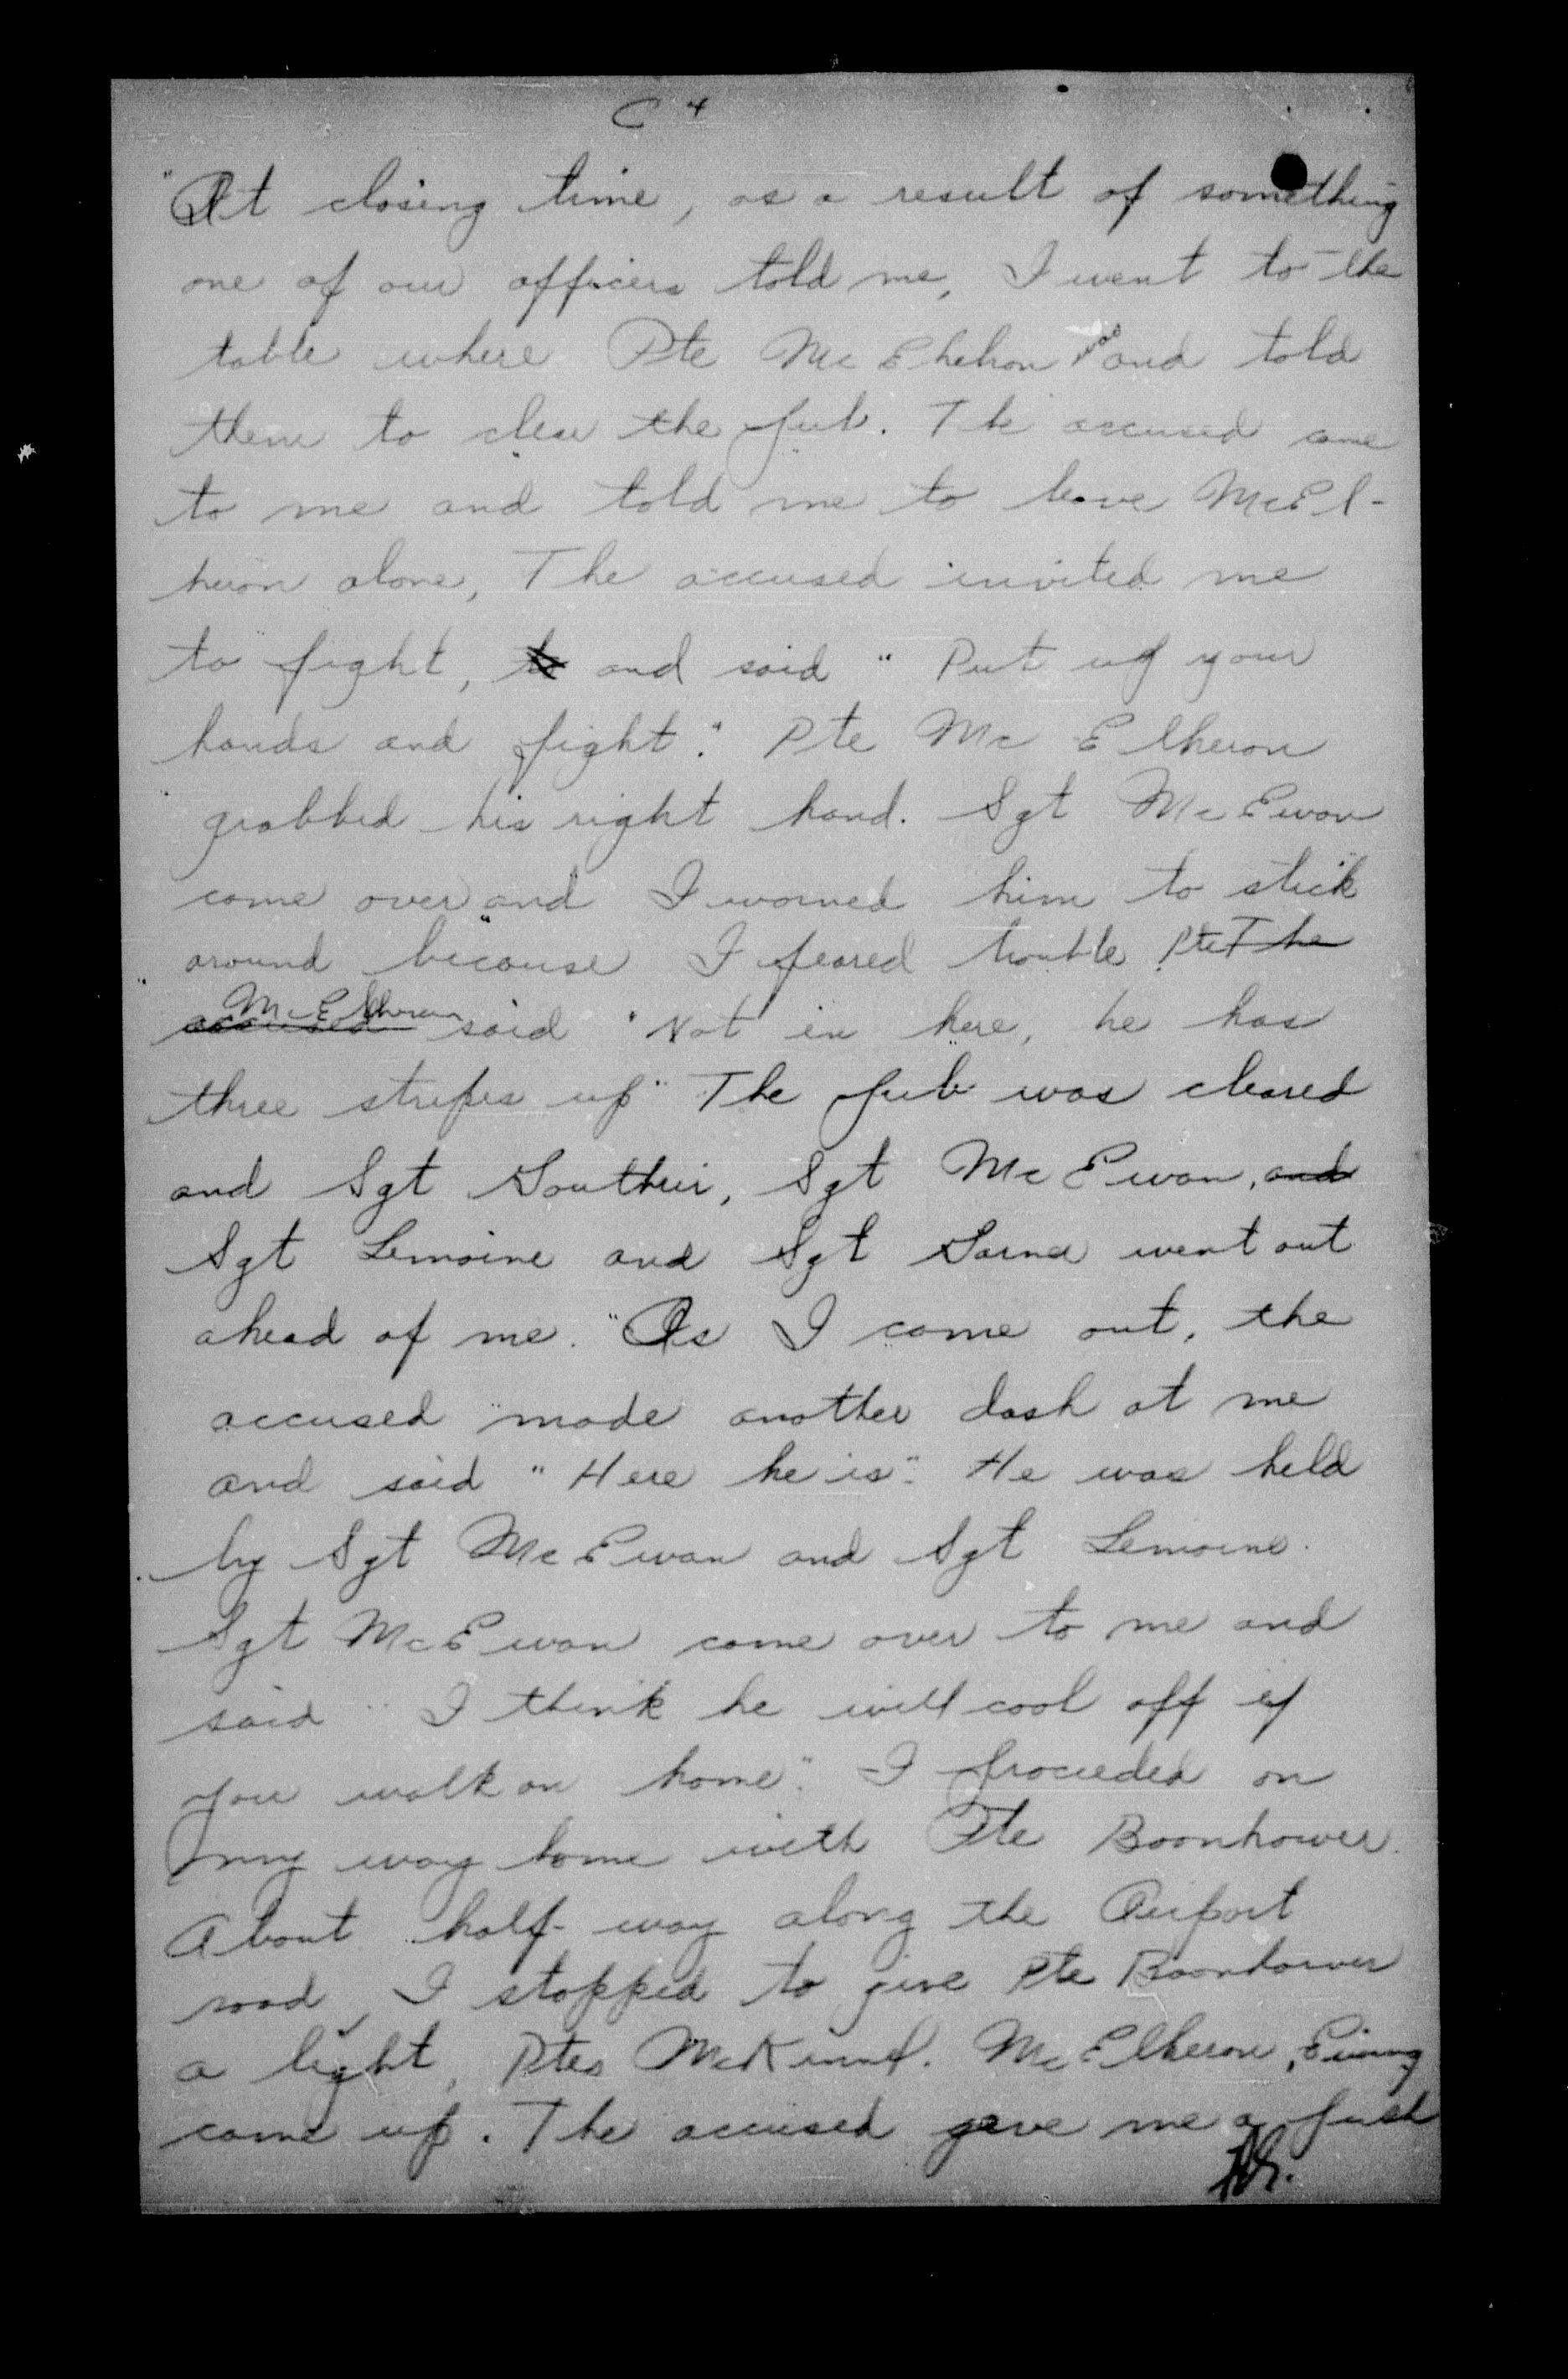 C 4
"At closing time, as a result of something
one of our officers told me, I went to the
table where Pte McElheron was and told
them to clear the pub. The accused came
to me and told me to leave McEl-
heron alone, The accused invited me
to fight, and said "Put up your
hands and fight." Pte McElheron
grabbed his right hand. Sgt McEwan
came over and I warned him to stick
around because I feared trouble Pte The
McElheron
accused said "Not in here, he has
three stripes up" The pub was cleared
and Sgt Southier, Sgt McEwan, and
Sgt Lemoine and Sgt went out
ahead of me. "As I came out, the
accused made another dash at me
and said "Here he is". He was held
by Sgt McEwan and Sgt Lemoine.
Sgt McEwan came over to me and
said "I think he will cool off if
you walk on home". I proceeded on
my way home with Pte Boonhower.
About half-way along the Airport
road, I stopped to give Pte Boonhower
a light, Ptes McElheron,
came up. The accused gave me a push